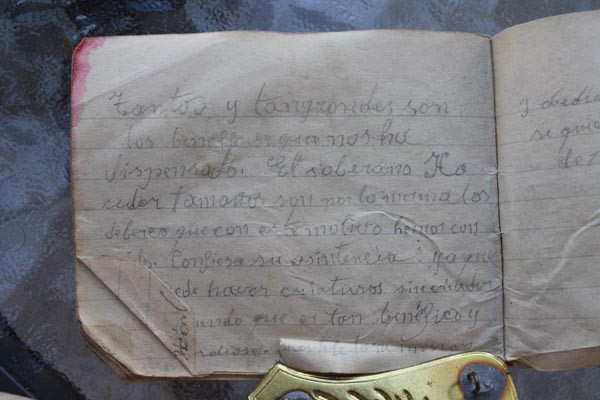 Tantos y tangrondes son
los beneficios que nos ha
dispensado. El soberano Ha
cedor tamaños son por lo misma los
deberes que con este motivo hemos con
Confiesa su esistencia; ya que
haver criaturos sin criador
endo que es tan benéfico y
y obedie
se quie
de